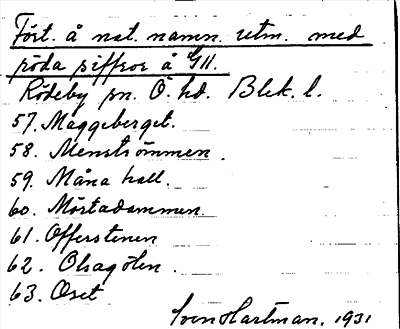 Fört. å nat. namn. utm. med
röda siffror å GK.
Rödeby sn. Ö. hd. Blek. l.
57. Maggeberget.
58. Menströmmen.
59. Måna hall.
60. Mörtadammen.
61. Offerstenen
62. Olsagölen.
63. Oset
Sven Hartman, 1931